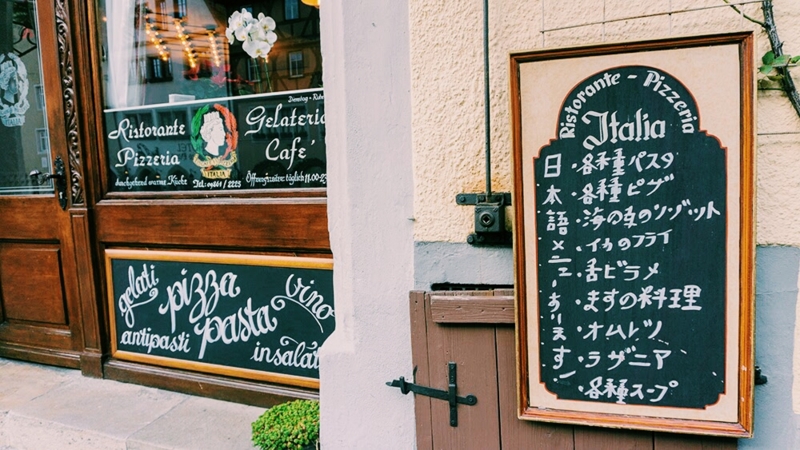 Ristorante
Pizzeria
ITALIA
Gelateria
Cafe'
durchgehend warme Küche
Öffnungszeiten: täglich 11.00-23
gelati
pizza
vino
antipasti
pasta
insalat
Ristorante - Pizzeria
Italia
日本語メニューあります
・各種パスタ
・各種ピザ
・海の幸のリゾット
・イカのフライ
・舌ビラメ
・ますの料理
・オムレツ
・ラザニア
・各種スープ